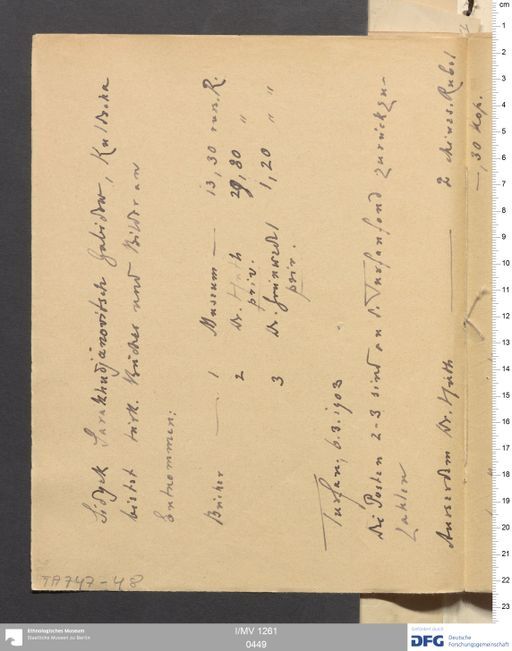 Sidyk Sarakhudjanovitsch Gabidow, Kuldscha
bietet türk. Bücher und Bilder an
Entnommen:
Bücher — 1 Museum — 13,30 rus. R.
2 Dr. Huth priv. 29,80 "
3 Dr. Grünwedel priv. 1,20 " "
Turfan, 6.3.1903
Die Posten 2-3 sind an d. Turfanfond zurückzu-
zahlen
Ausserdem Dr. Huth — 2 chines. Rubel
—,30 Kop.
TA 747-48
Ethnologisches Museum
Staatliche Museen zu Berlin
I/MV 1261
0449
DFG
Deutsche
Forschungsgemeinschaft
cm
1
2
3
4
5
6
7
8
9
10
11
12
13
14
15
16
17
18
19
20
21
22
23